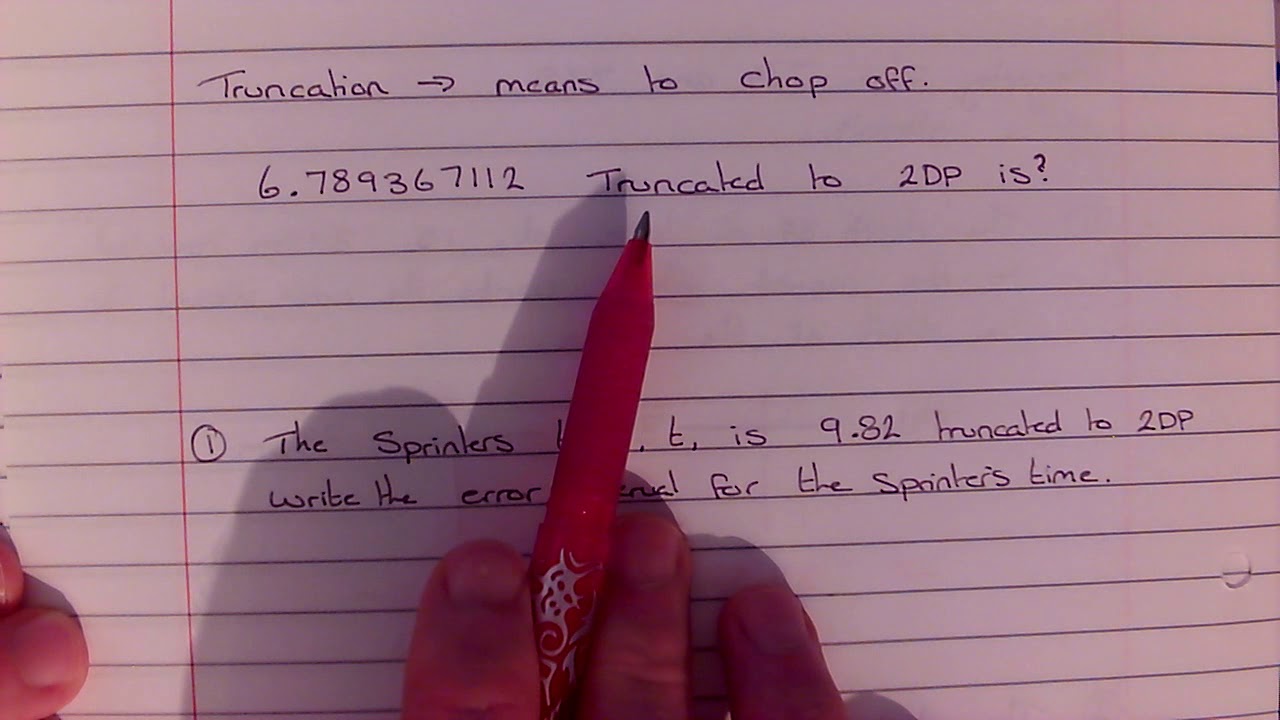 Truncation → means to chop off.
6.789367112 Truncated to 2DP is?
① The Sprinters t, is 9.82 truncated to 2DP
write the error for the Sprinter's time.